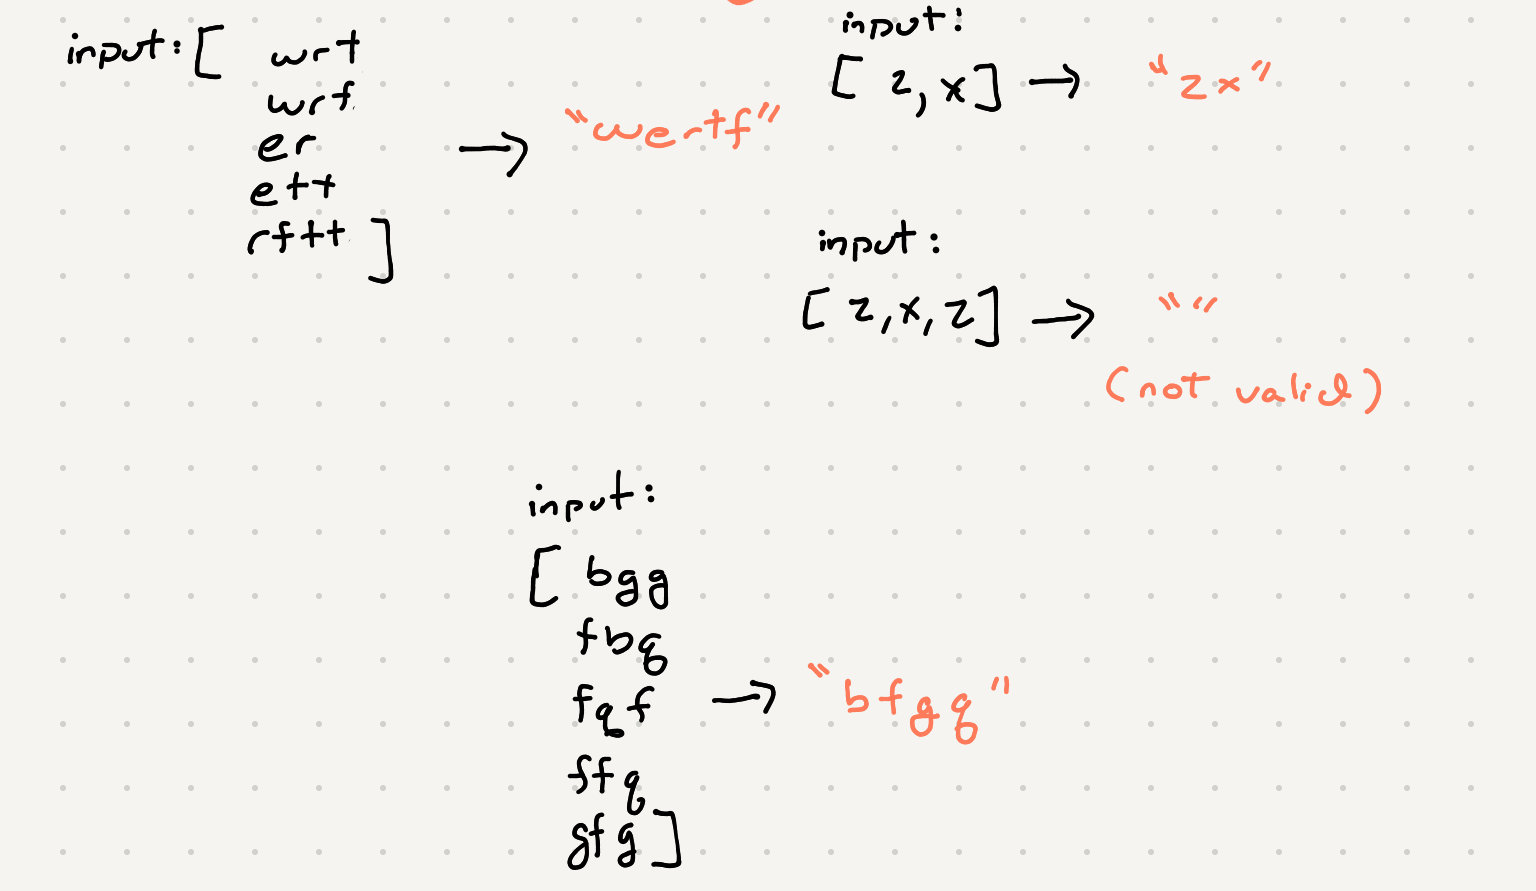 input: [ wrt
wrf
er
ett
rftt ]
→ "wertf"
input:
[ z, x ] → "zx"
input:
[ z, x, z ] → ""
(not valid)
input:
[ bgg
fbq
fqf → "bfgq"
ffq
gfg ]